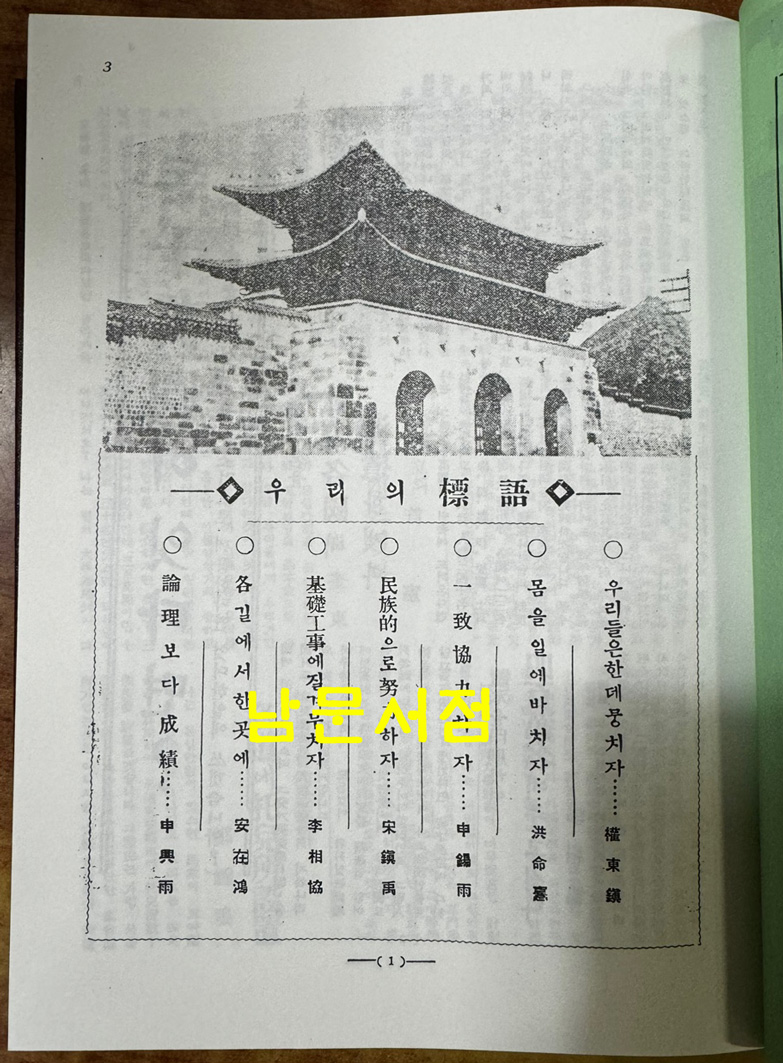 3
우리의 標語
○ 우리들은한데뭉치자……權東鎭
○ 몸을일에바치자……洪命憙
○ 一致協 자……申錫雨
○ 民族的으로努 하자……宋鎭禹
○ 基礎工事에 치자……李相協
○ 各길에서한곳에……安在鴻
○ 論理보다成績……申興雨
남문서점
( 1 )